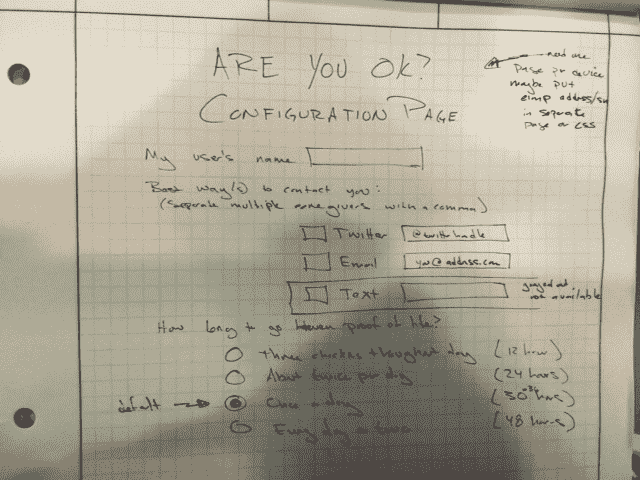 ARE YOU OK?
CONFIGURATION PAGE
need one
page pr device
maybe put
eimp address/sn
in seperate
page or CSS
My user's name
Best way(s) to contact you:
(Seperate multiple caregivers with a comma)
Twitter @twitterhandle
Email you@address.com
Text
grayed out, not available
How long to go between proof of life?
Three checkins throughout day (12 hours)
About twice per day (24 hours)
default → Once a day (30 hours)
Every day or (48 hours)